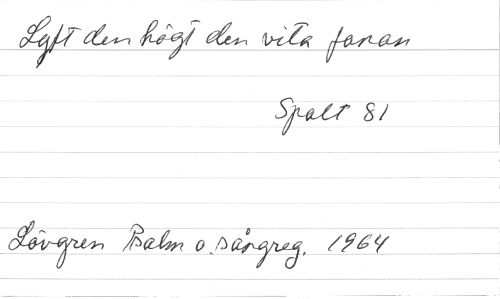 Lyft den högt den vita fanan
Spalt 81
Lövgren Psalm o. sångreg. 1964